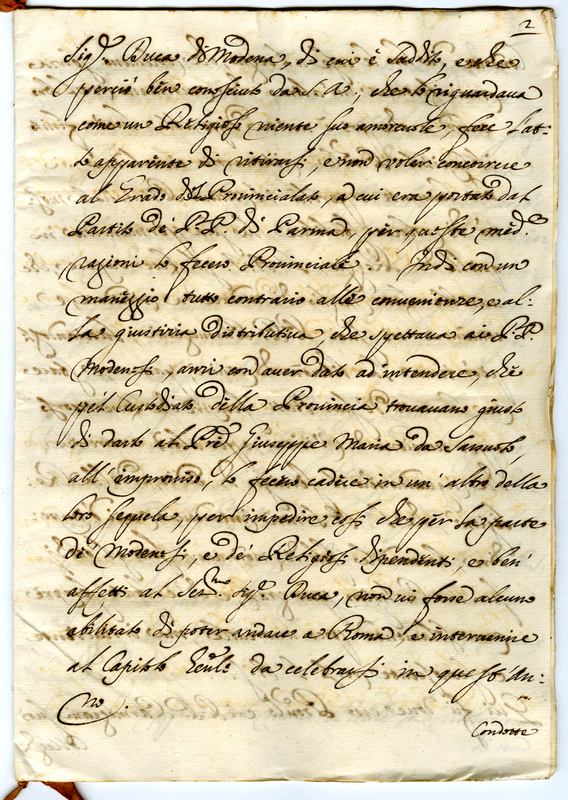 2
Sig.r Duca di Modena, di cui è suddito, e che
perciò ben conosciuto da S. A., che lo riguardava
come un Religioso niente suo amorevole, fece l'at-
to apparente di ritirarsi, e non voler concorrere
al Grado del Provincialato, a cui era portato dal
Partito de' P.P. di Parma, per queste med.e
ragioni lo fecero Provinciale. Indi con un
maneggio tutto contrario alle convenienze, e al-
la giustizia distributiva, che spettava ai P.P.
Modenesi, anzi con aver dato ad intendere, che
pel Custodiato della Provincia trovavano giusto
di darlo al Pre Giuseppe Maria da Sassuolo,
all'improviso, lo fecero cadere in un' altro della
loro sequela, per impedire così che per la parte
di Modenesi, e de' Religiosi dipendenti, e ben'
affetti al Ser.mo Sig.r Duca, non vi fosse alcuno
abilitato di poter andare a Roma, e intervenire
al Capitolo Genle da celebrarsi in quest'An-
no.
Condotte